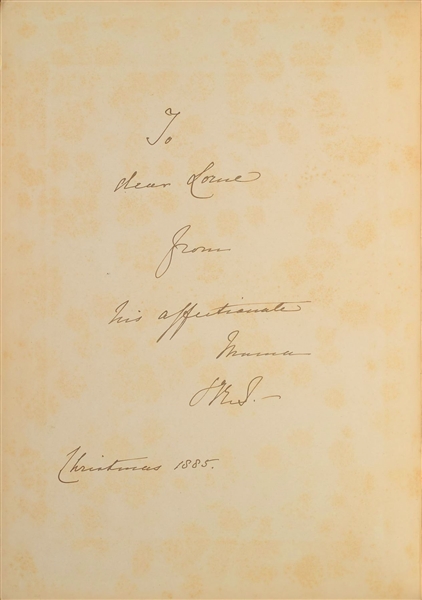 To
dear Lorne
from
his affectionate
Mama
VRI.—
Christmas 1885.